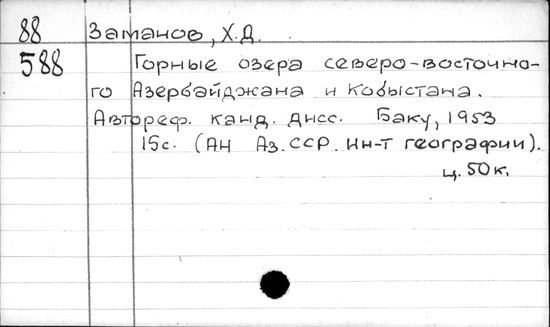 88 Заманов, Х.Д.
588 Горные озера северо-восточно-
го Азербайджана и Кобыстана.
Автореф. канд. дисс. Баку, 1953
15с. (АН Аз.ССР. Ин-т географии).
ц. 50к.